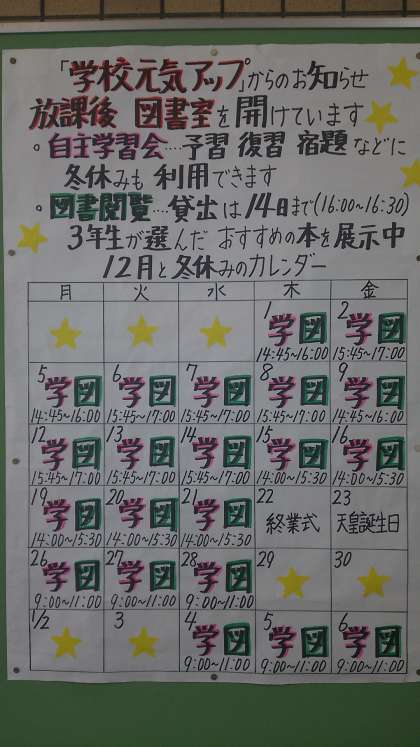 「学校元気アップ」からのお知らせ
放課後 図書室を開けています
。自主学習会…予習 復習 宿題 などに
冬休みも 利用できます
。図書閲覧…貸出は14日まで(16:00~16:30)
3年生が選んだ おすすめの本を展示中
12月と冬休みのカレンダー
月 火 水 木 金
1 学図 2 学図
14:45~16:00 15:45~17:00
5 学図 6 学図 7 学図 8 学図 9 学図
14:45~16:00 15:45~17:00 15:45~17:00 15:45~17:00 14:45~16:00
12 学図 13 学図 14 学図 15 学図 16 学図
15:45~17:00 15:45~17:00 15:45~17:00 14:00~15:30 14:00~15:30
19 学図 20 学図 21 学図 22 終業式 23 天皇誕生日
14:00~15:30 14:00~15:30 14:00~15:30
26 学図 27 学図 28 学図 29 30
9:00~11:00 9:00~11:00 9:00~11:00
1/2 3 4 学図 5 学図 6 学図
9:00~11:00 9:00~11:00 9:00~11:00